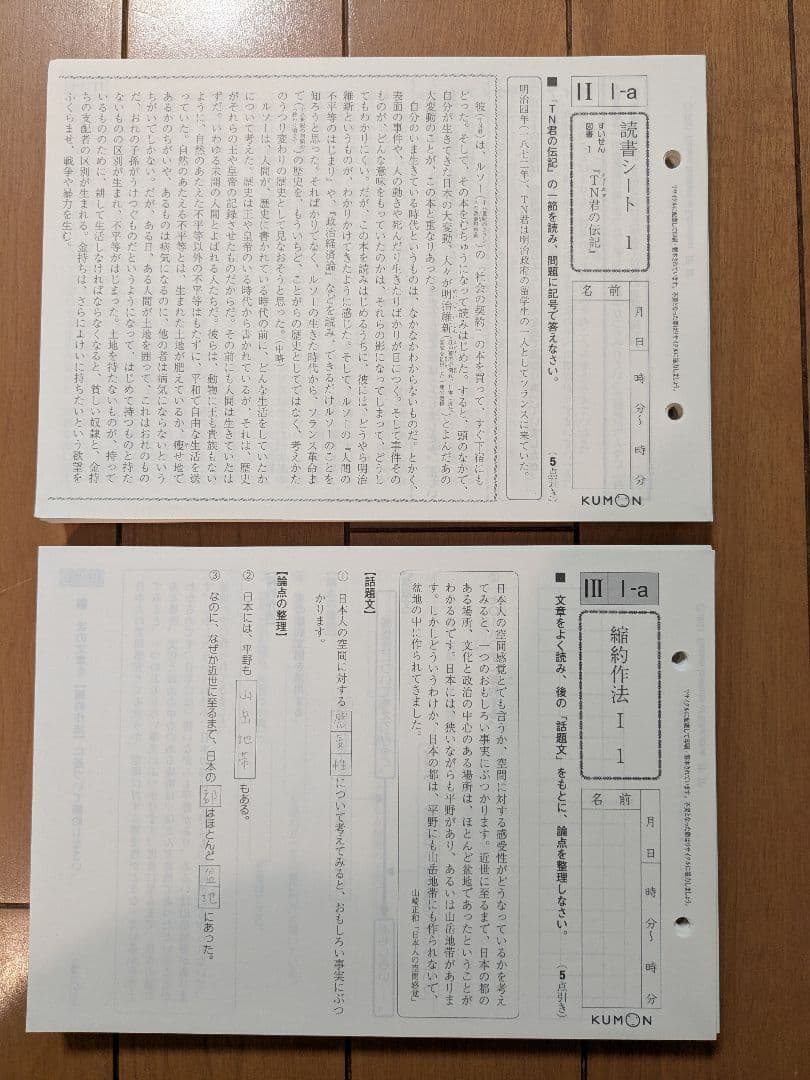 II I-a
読書シート 1
すいせん図書1 『TN君の伝記』
名前
月 日 時 分～ 時 分
KUMON
■「TN君の伝記」の一節を読み、問題に記号で答えなさい。
(5点引き)
明治四年（一八七二年）、TN君は明治政府の留学生の一人としてフランスに来ていた。
彼は、ルソーの『社会の契約』の本を買って、すぐ下宿にも
どった。そして、その本をむちゅうになって読みはじめた。すると、頭のなかで、
自分が生きてきた日本の大変動、人々が明治維新とよんだあの
大変動のことが、この本と重なりあった。
自分のいま生きている時代というものは、なかなかわからないものだ。とかく、
表面の事件や、人の動きや死んだり生きたりばかりが目につく。そして事件その
ものが、どんな意味をもっていたのかは、それらの影になってしまって、どうし
てもわかりにくい。だが、この本を読みはじめるうちに、彼には、どうやら明治
維新というものが、わかりかけてきたように感じた。そして、ルソーの『人間の
不平等のはじまり』や、『政治経済論』などを読み、できるだけルソーのことを
知ろうと思った。そればかりでなく、ルソーの生きた時代から、フランス革命ま
での歴史を、もういちど、ことがらの歴史としてではなく、考えかた
のうつり変わりの歴史として見なおそうと思った。（中略）
ルソーは、人間が、歴史に書かれている時代の前に、どんな生活をしていたか
について考えた。歴史は王や皇帝のいる時代から書かれているが、それは、歴史
がそれらの王や皇帝の記録させたものだからだ。その前にも人間は生きていたは
ずだ。いわゆる未開の人間とよばれる人たちだ。彼らは、動物に王も貴族もない
ように、自然のあたえた不平等以外の不平等はもたずに、平和で自由な生活を送
っていた。自然のあたえる不平等とは、生まれた土地が肥えているか、痩せ地で
あるかのちがいや、あるものは病気になるのに、他の者は病気にならないという
ちがいでしかない。だが、ある日、ある人間が土地を囲って、これはおれのもの
だ、おれの子孫がうけつぐものだというようになって、はじめて持つものと持た
ないものの区別が生まれ、不平等がはじまった。土地を持たないものが、持って
いるもののために、耕して生活しなければならなくなると、貧しい奴隷と、金持
ちの支配者の区別が生まれる。金持ちは、さらによけいに持ちたいという欲望を
ふくらませ、戦争や暴力を生む。
III I-a
縮約作法 I 1
名前
月 日 時 分～ 時 分
KUMON
■文章をよく読み、後の「話題文」をもとに、論点を整理しなさい。
(5点引き)
日本人の空間感覚とでも言うか、空間に対する感受性がどうなっているかを考え
てみると、一つのおもしろい事実にぶつかります。近世に至るまで、日本の都の
ある場所、文化と政治の中心のある場所は、ほとんど盆地であったということが
わかるのです。日本には、狭いながらも平野があり、あるいは山岳地帯がありま
す。しかしどういうわけか、日本の都は、平野にも山岳地帯にも作られないで、
盆地の中に作られてきました。
山崎正和「日本人の空間感覚」
【話題文】
① 日本人の空間に対する感受性について考えてみると、おもしろい事実にぶつ
かります。
【論点の整理】
② 日本には、平野も山岳地帯もある。
③ なのに、なぜか近世に至るまで、日本の都はほとんど盆地にあった。